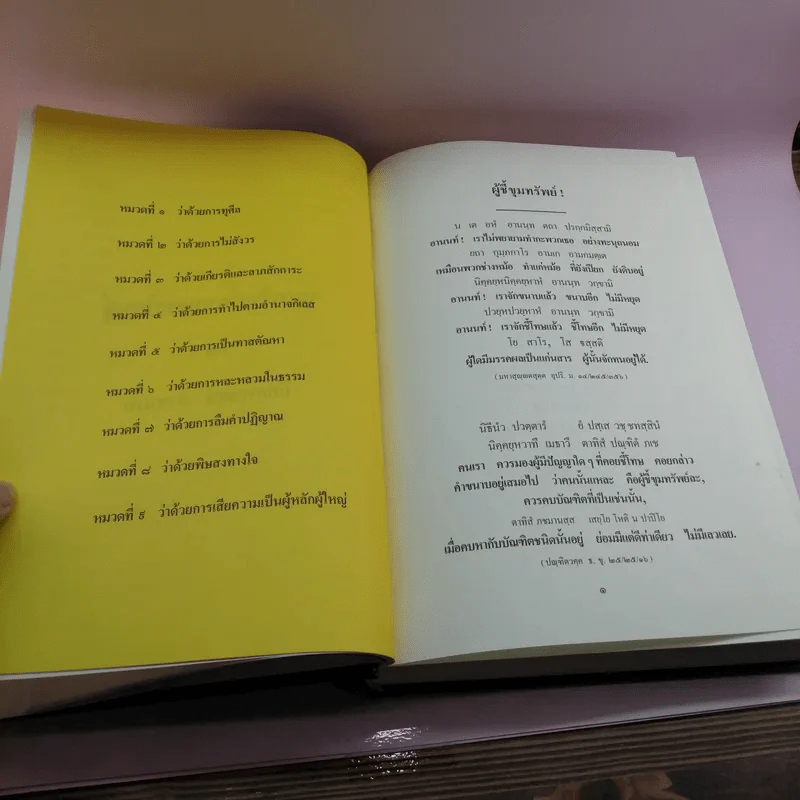 หมวดที่ ๑ ว่าด้วยการทุศีล
หมวดที่ ๒ ว่าด้วยการไม่สังวร
หมวดที่ ๓ ว่าด้วยเกียรติและลาภสักการะ
หมวดที่ ๔ ว่าด้วยการทำไปตามอำนาจกิเลส
หมวดที่ ๕ ว่าด้วยการเป็นทาสตัณหา
หมวดที่ ๖ ว่าด้วยการหละหลวมในธรรม
หมวดที่ ๗ ว่าด้วยการลืมคำปฏิญาณ
หมวดที่ ๘ ว่าด้วยพิษสงทางใจ
หมวดที่ ๙ ว่าด้วยการเสียความเป็นผู้หลักผู้ใหญ่
ผู้ชี้ขุมทรัพย์ !
น เต อหํ อานนฺท ตถา ปรกฺกมิสฺสามิ
อานนท์ ! เราไม่พยายามทำกะพวกเธอ อย่างทะนุถนอม
ยถา กุมฺภกาโร อามเก อามกมตฺเต
เหมือนพวกช่างหม้อ ทำแก่หม้อ ที่ยังเปียก ยังดิบอยู่
นิคฺคยฺหนิคฺคยฺหาหํ อานนฺท วกฺขามิ
อานนท์ ! เราจักขนาบแล้ว ขนาบอีก ไม่มีหยุด
ปวยฺหปวยฺหาหํ อานนฺท วกฺขามิ
อานนท์ ! เราจักชี้โทษแล้ว ชี้โทษอีก ไม่มีหยุด
โย สาโร, โส ฐสฺสติ
ผู้ใดมีมรรคผลเป็นแก่นสาร ผู้นั้นจักทนอยู่ได้.
(มหาสุญฺญตสุตฺต อุปริ. ม. ๑๔/๒๔๕/๓๕๖)
นิธีนํว ปวตฺตารํ ยํ ปสฺเส วชฺชทสฺสินํ
นิคฺคยฺหวาทึ เมธาวึ ตาทิสํ ปณฺฑิตํ ภเช
คนเรา ควรมองผู้มีปัญญาใด ๆ ที่คอยชี้โทษ คอยกล่าว
คำขนาบอยู่เสมอไป ว่าคนนั้นแหละ คือผู้ชี้ขุมทรัพย์ละ,
ควรคบบัณฑิตที่เป็นเช่นนั้น,
ตาทิสํ ภชมานสฺส เสยฺโย โหติ น ปาปิโย
เมื่อคบหากับบัณฑิตชนิดนั้นอยู่ ย่อมมีแต่ดีท่าเดียว ไม่มีเลวเลย.
(ปณฺฑิตวคฺค ธ. ขุ. ๒๕/๒๕/๑๖)
๑